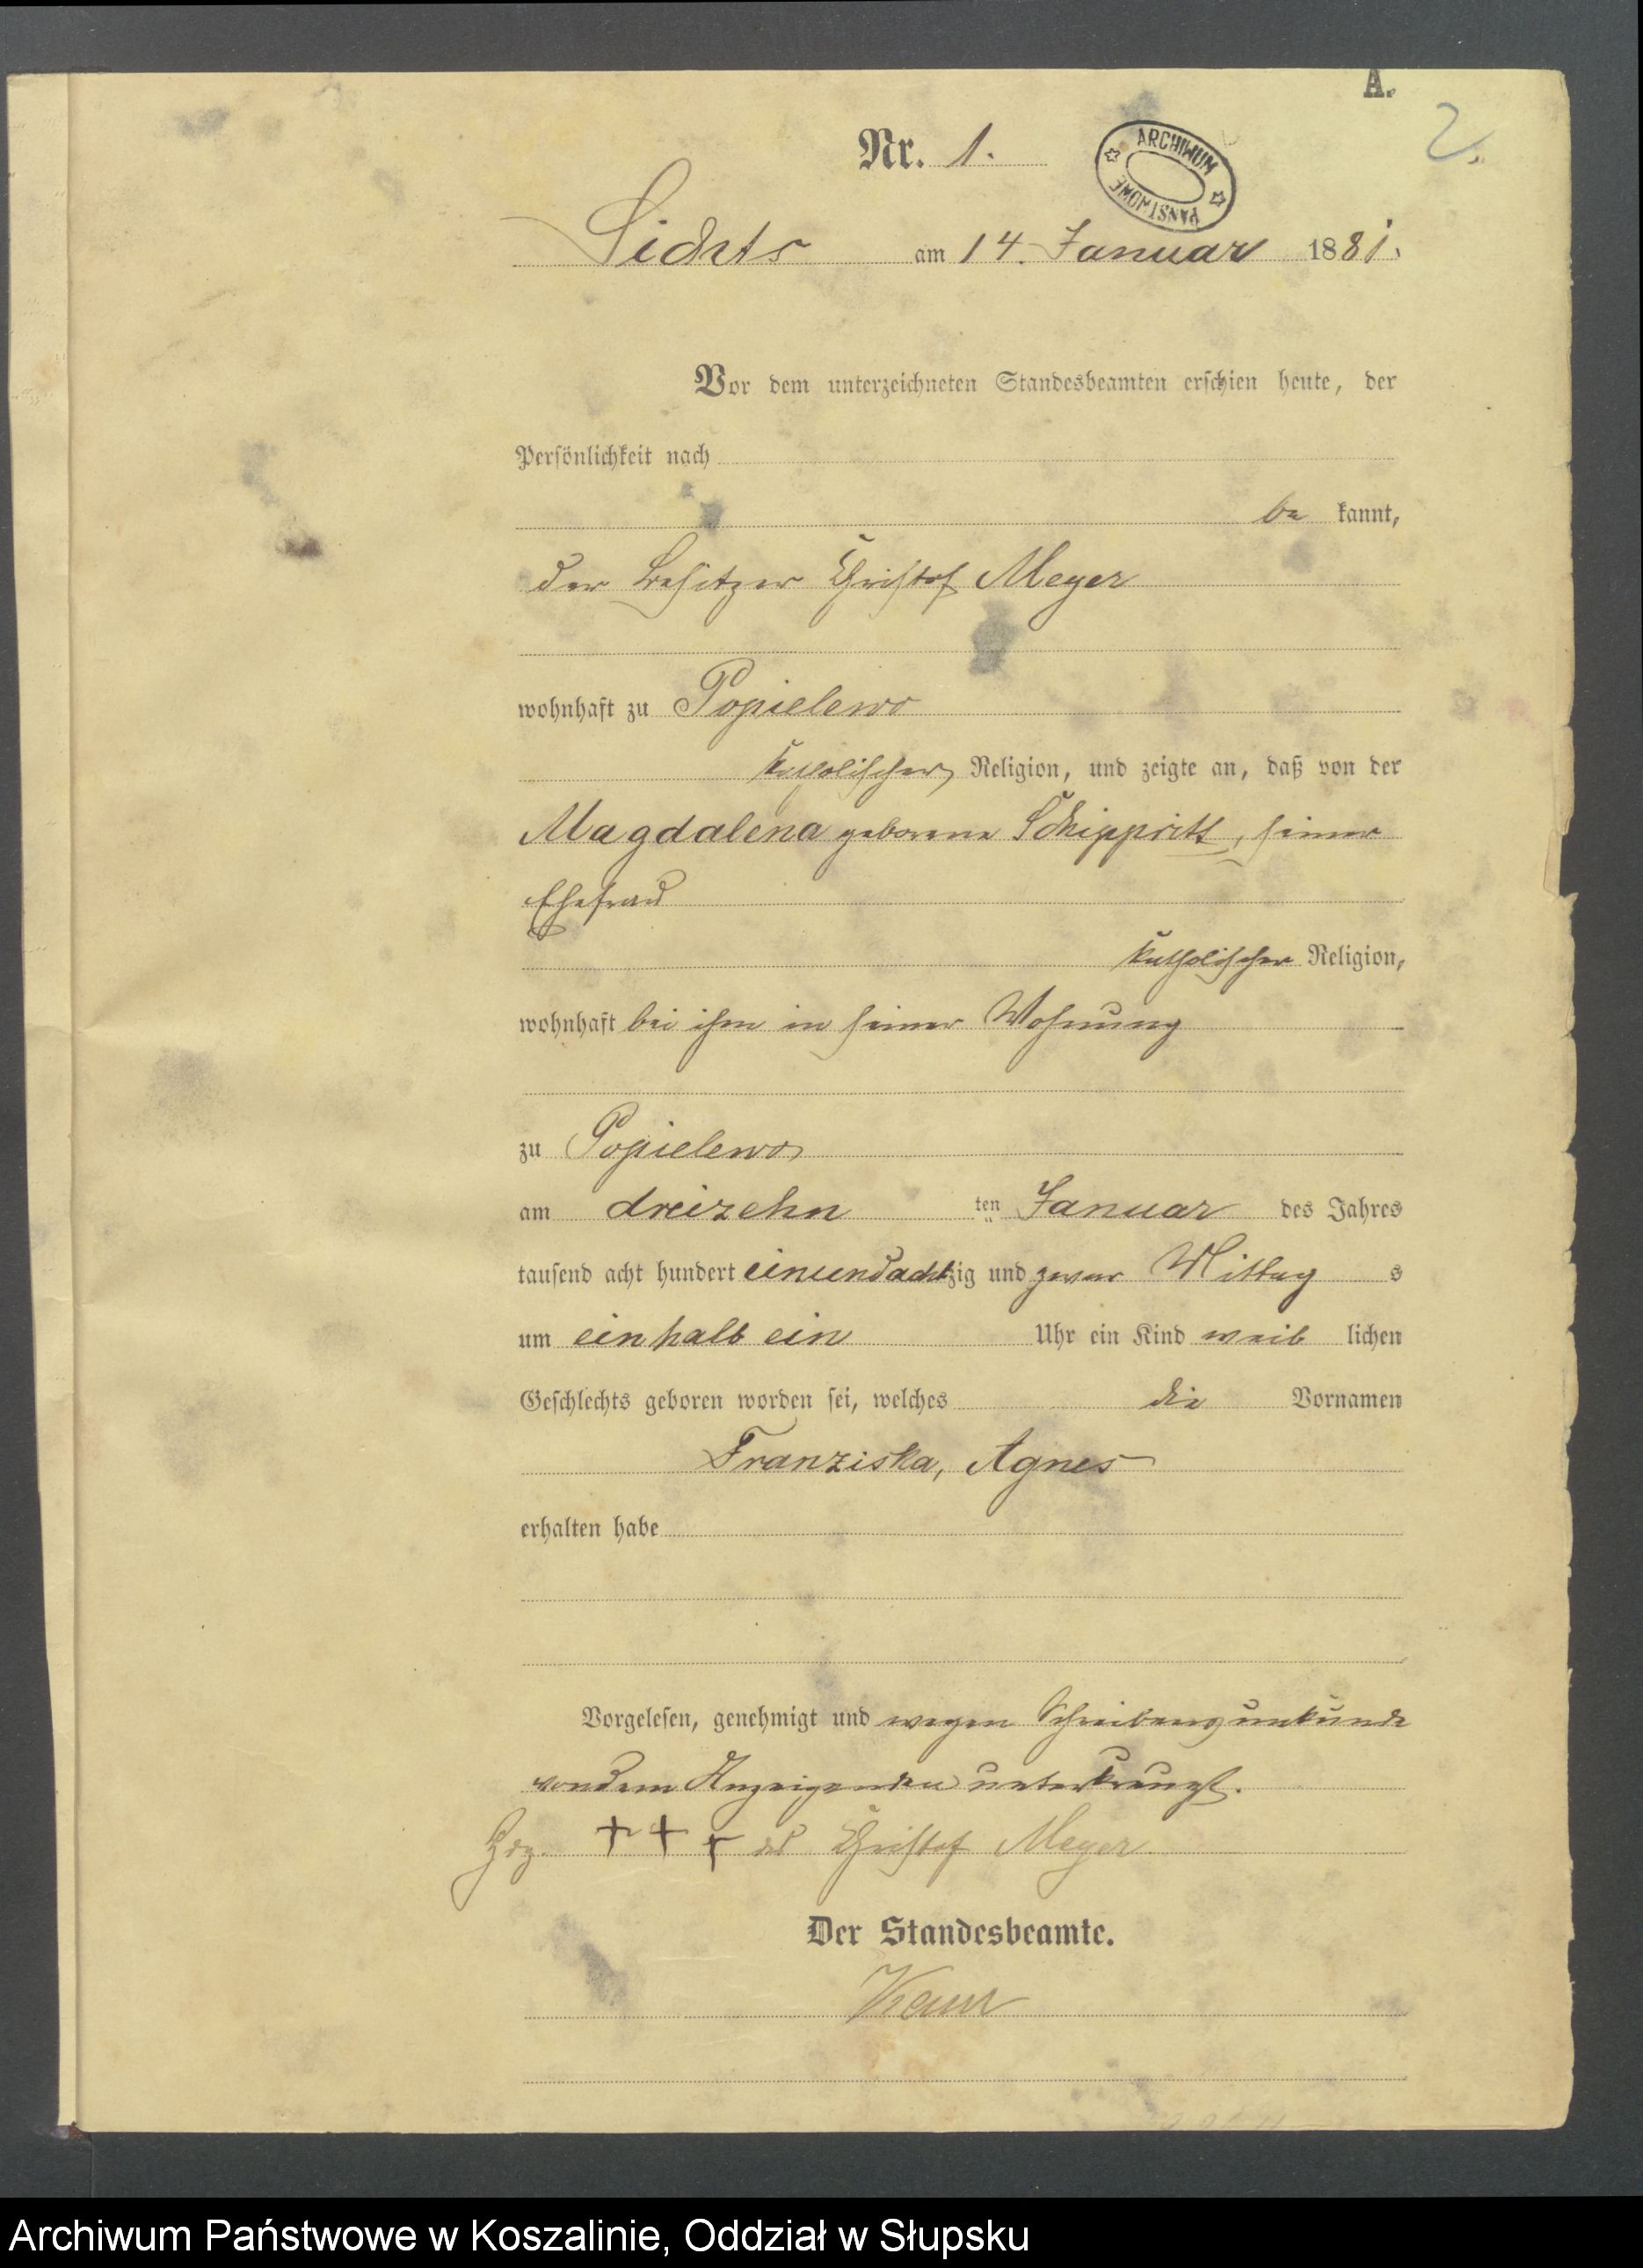 A.
2.
Nr. 1.
ARCHIWUM PAŃSTWOWE
am 14. Januar 1881.
Vor dem unterzeichneten Standesbeamten erschien heute, der
Persönlichkeit nach
be kannt,
der Besitzer Christof Meyer
wohnhaft zu Popielewo
katholischer Religion, und zeigte an, daß von der
Magdalena geborene seiner
Ehefrau
katholischer Religion,
wohnhaft bei ihm in seiner Wohnung
zu Popielewo
am dreizehn ten Januar des Jahres
tausend acht hundert einundachtzig und zwar Mittag s
um ein halb ein Uhr ein Kind weib lichen
Geschlechts geboren worden sei, welches die Vornamen
Franziska, Agnes
erhalten habe
Vorgelesen, genehmigt und wegen Schreibensunkunde
von dem Anzeigenden unterkreuzt.
+ + + des Christof Meyer.
Der Standesbeamte.
Archiwum Państwowe w Koszalinie, Oddział w Słupsku